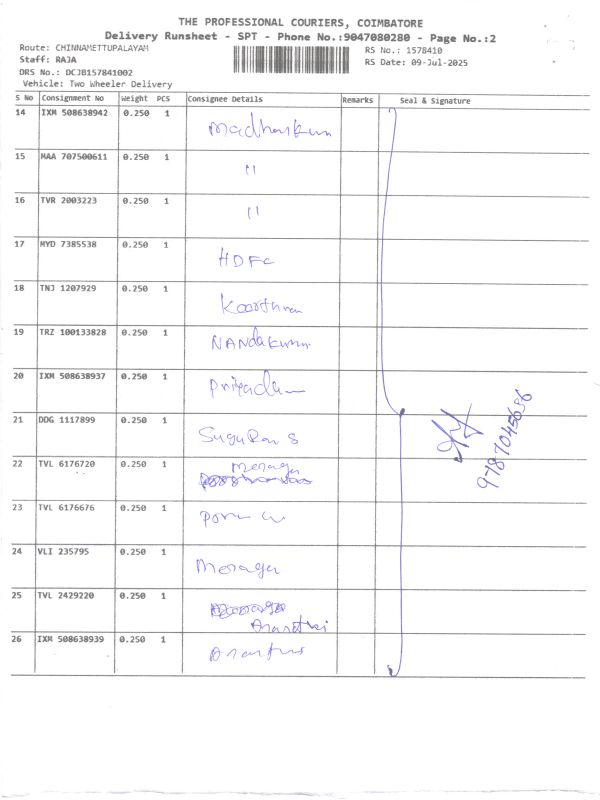 THE PROFESSIONAL COURIERS, COIMBATORE
Delivery Runsheet - SPT - Phone No.:9047080280 - Page No.:2
Route: CHINNAMETTUPALAYAM
RS No.: 1578410
Staff: RAJA
RS Date: 09-Jul-2025
DRS No.: DCJB157841002
Vehicle: Two Wheeler Delivery
S No Consignment No Weight PCS Consignee Details Remarks Seal & Signature
14 IXM 508638942 0.250 1
15 MAA 707500611 0.250 1 "
16 TVR 2003223 0.250 1 "
17 MYD 7385538 0.250 1 HDFC
18 TNJ 1207929 0.250 1
19 TRZ 100133828 0.250 1 NANdakumar
20 IXM 508638937 0.250 1
21 DDG 1117899 0.250 1
22 TVL 6176720 0.250 1
23 TVL 6176676 0.250 1
24 VLI 235795 0.250 1
25 TVL 2429220 0.250 1
26 IXM 508638939 0.250 1
9787045636